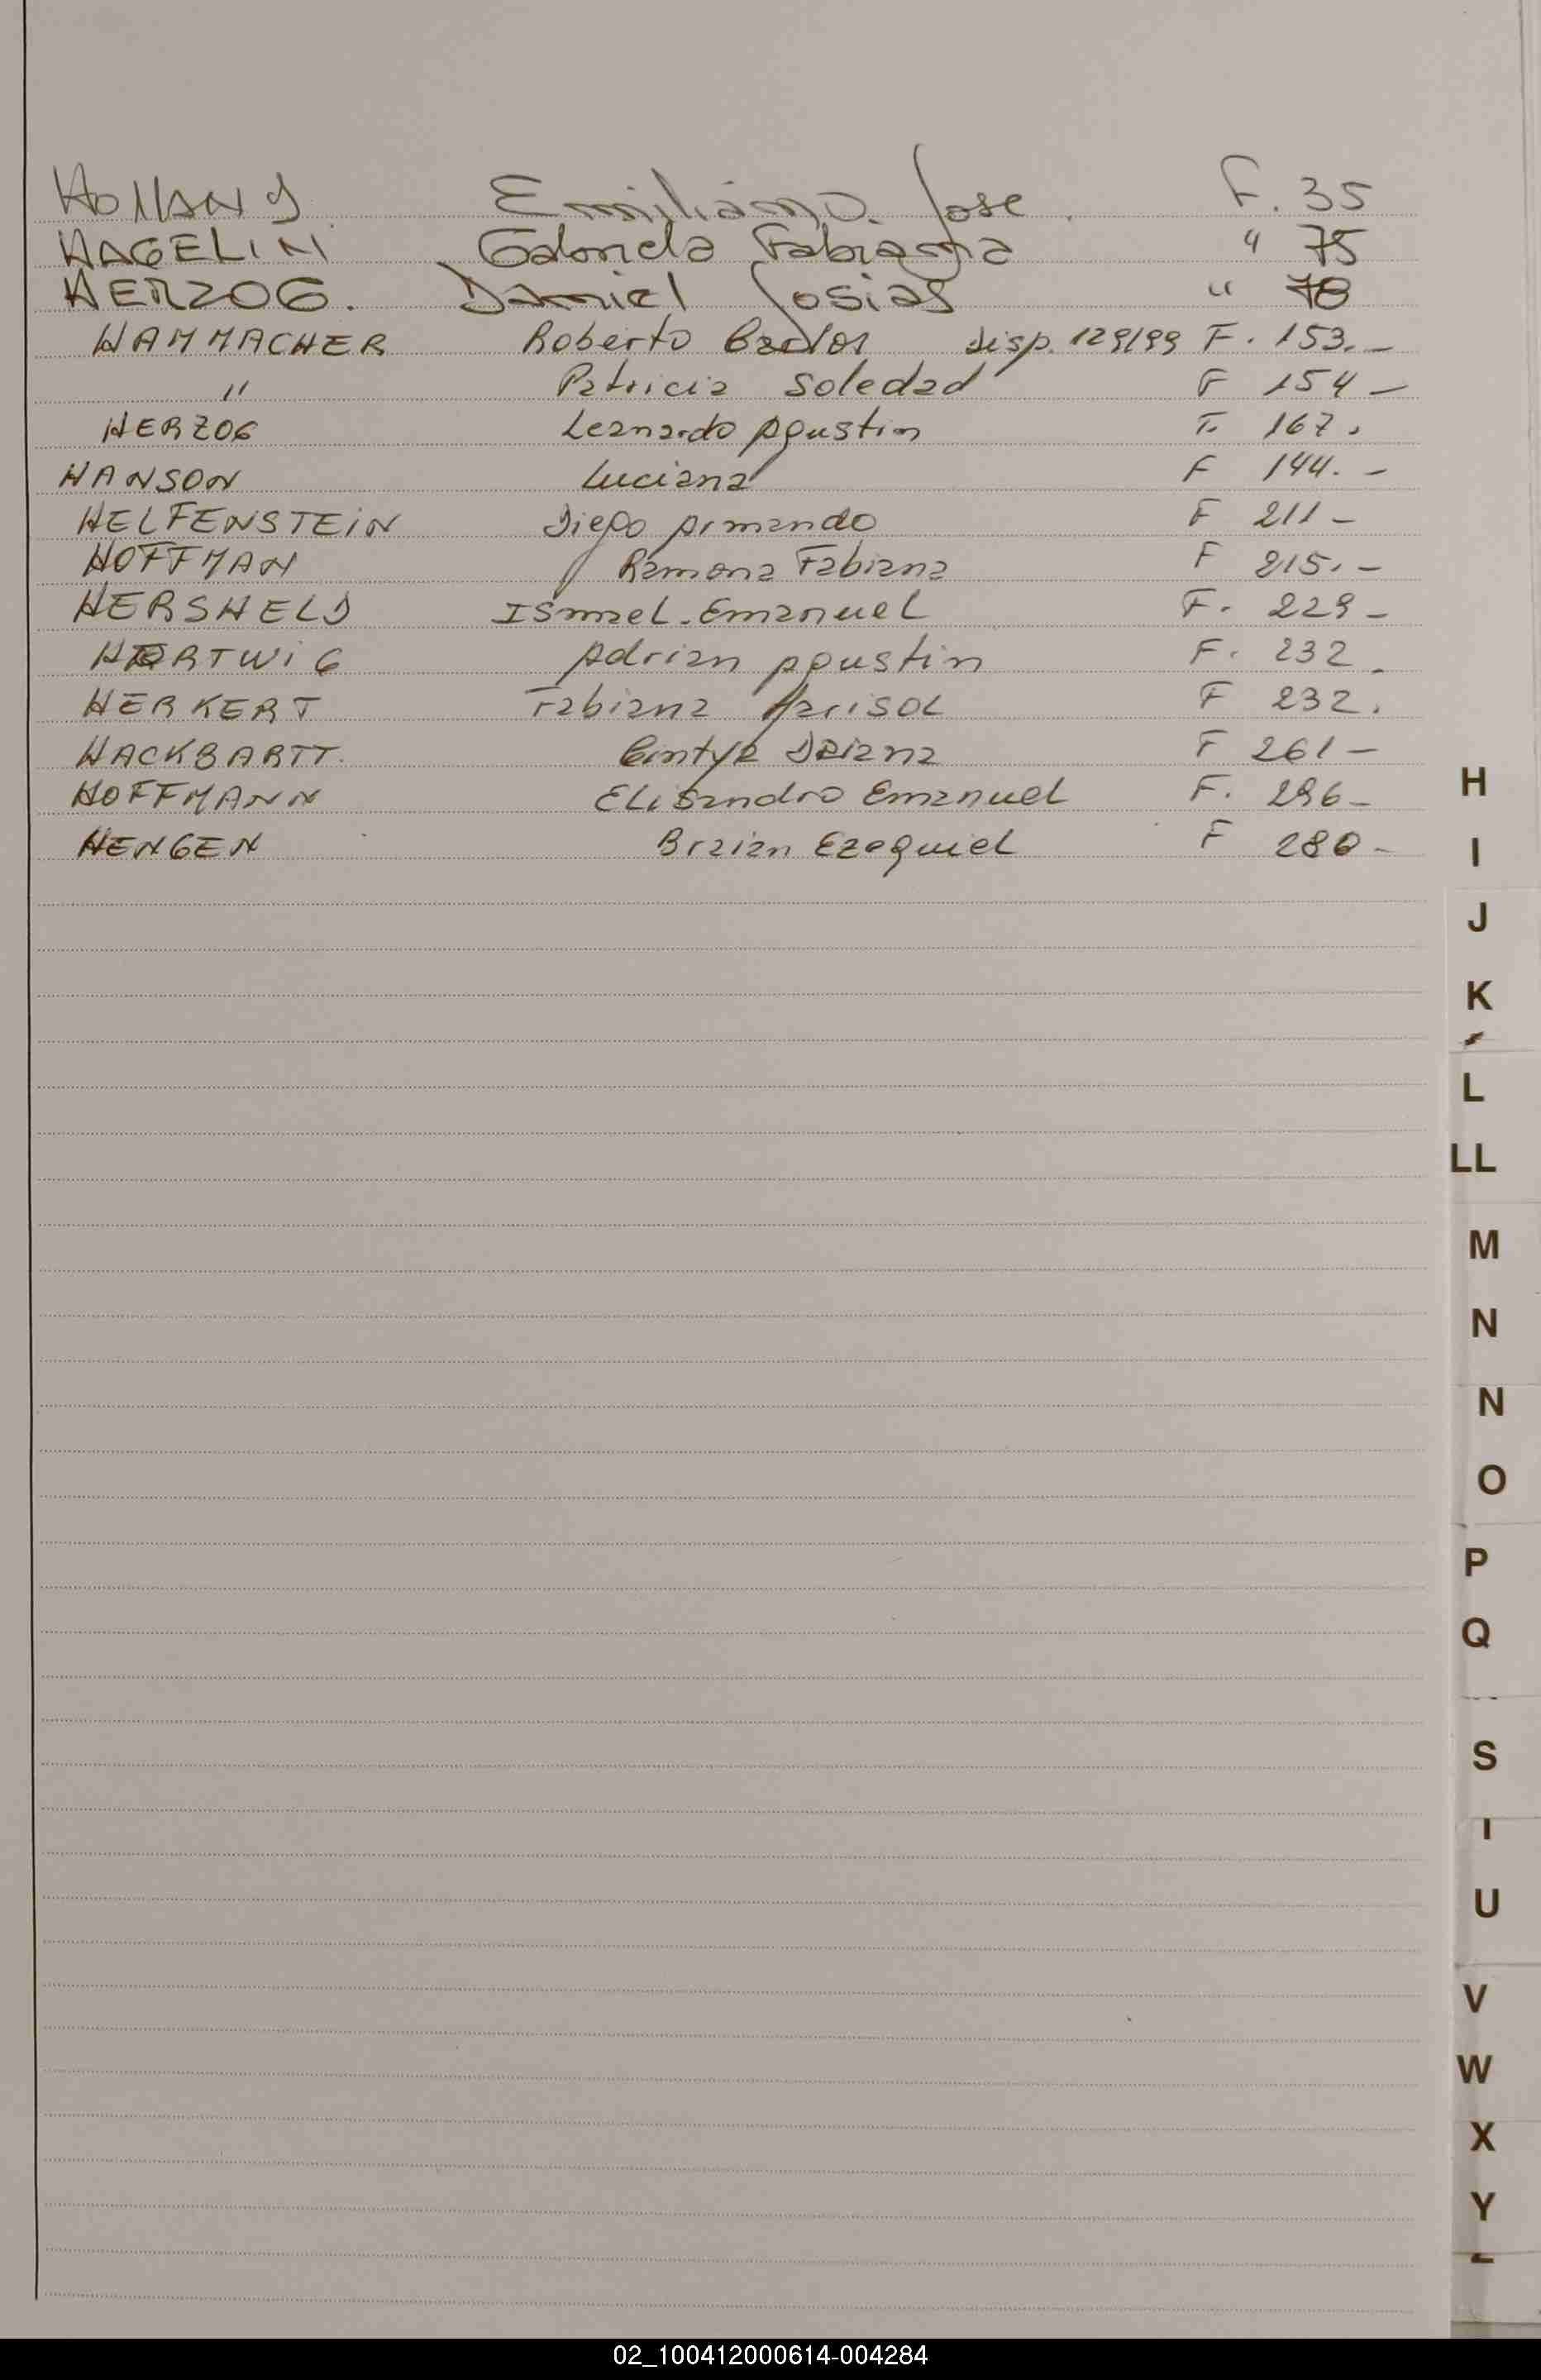 HOLLAND Emiliano Jose. F. 35
HAGELIN Gabriela Fabiana " 75
HERZOG. Daniel Josias " 78
HAMMACHER Roberto Carlos Disp. 129/99 F. 153.-
" Patricia Soledad F 154-
HERZOG Leonardo Agustin F. 167.
HANSON Luciana F 144.-
HELFENSTEIN Diego Armando F 211-
HOFFMAN Ramona Fabiana F 215.-
HERSHELD Ismael.Emanuel F. 229-
HERTWIG Adrian Agustin F. 232.
HERKERT Fabiana Marisol F 232.
HACKBARTT. Cintya Daiana F 261-
HOFFMANN Elisandro Emanuel F. 296-
HENGEN Braian Ezequiel F 280-
H
I
J
K
L
LL
M
N
N
O
P
Q
S
U
V
W
X
Y
02_100412000614-004284